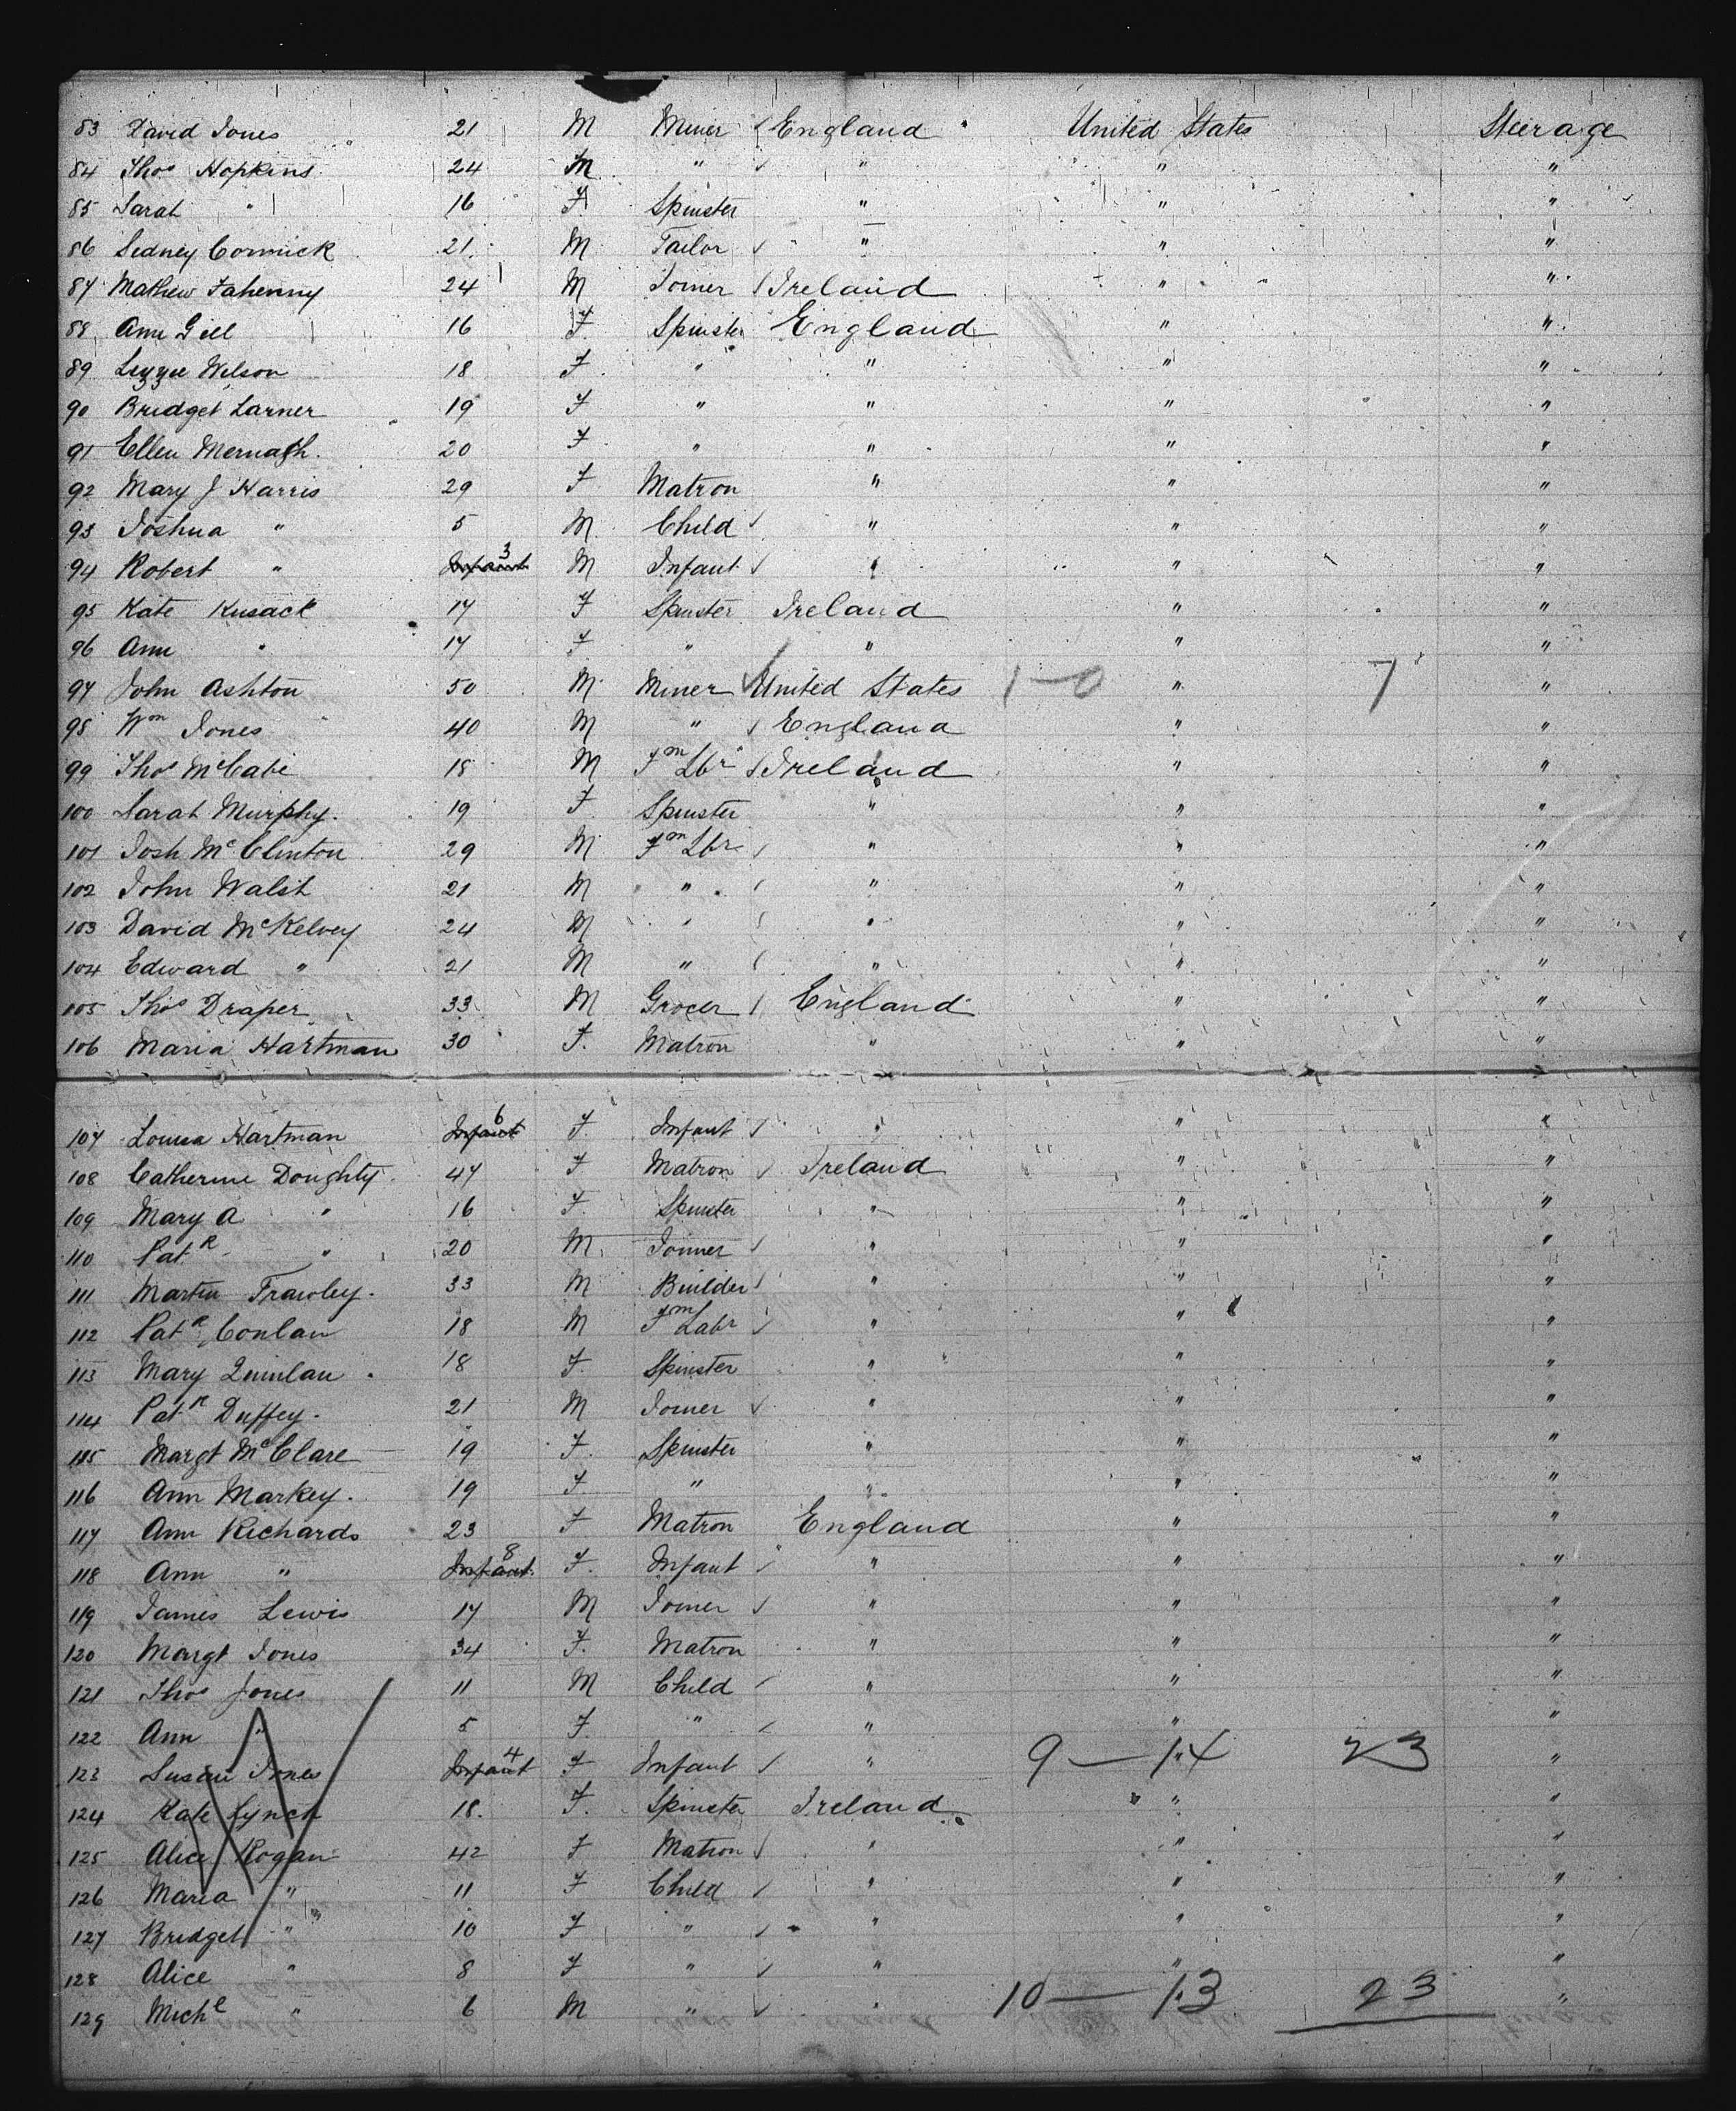 83 David Jones 21 M Miner England United States Steerage
84 Thos Hopkins 24 M " " " "
85 Sarah " 16 F Spinster " " "
86 Sidney Cormick 21 M Tailor " " "
87 Mathew Fahenny 24 M Joiner Ireland " "
88 Ann Gill 16 F Spinster England " "
89 Lizzie Wilson 18 F " " " "
90 Bridget Larner 19 F " " " "
91 Ellen Mernagh 20 F " " " "
92 Mary J Harris 29 F Matron " " "
93 Joshua " 5 M Child " " "
94 Robert " Infant 3 M Infant " " "
95 Kate Kusack 17 F Spinster Ireland " "
96 Ann " 17 F " " " "
97 John Ashton 50 M Miner United States 1-0 " 7 "
98 Wm Jones 40 M " England " "
99 Thos McCabe 18 M Fm Lbr Ireland " "
100 Sarah Murphy. 19 F Spinster " " "
101 Josh McClinton 29 M Fm Lbr " " "
102 John Walsh 21 M " " " "
103 David McKelvey 24 M " " " "
104 Edward " 21 M " " " "
105 Thos Draper 33 M Grocer England " "
106 Maria Hartman 30 F. Matron " " "
107 Louisa Hartman Infant 6 F Infant " " "
108 Catherine Doughty 47 F Matron Ireland " "
109 Mary A " 16 F. Spinster " " "
110 PatK " 20 M Joiner " " "
111 Martin Frawley. 33 M Builder " " "
112 PatK Conlan 18 M Fm Labr " " "
113 Mary Quinlan 18 F. Spinster " " "
114 PatK Duffey. 21 M Joiner " " "
115 Margt McClare 19 F. Spinster " " "
116 Ann Markey. 19 F " " " "
117 Ann Richards 23 F Matron England " "
118 Ann " Infant 8 F. Infant " " "
119 James Lewis 17 M Joiner " " "
120 Margt Jones 34 F. Matron " " "
121 Thos Jones 11 M Child " " "
122 Ann " 5 F. " " " "
123 Susan Jones Infant 4 F Infant " 9 — 14 23 "
124 Kate Lynch 18. F. Spinster Ireland " "
125 Alice Rogan 42 F Matron " " "
126 Maria " 11 F Child " " "
127 Bridget " 10 F " " " "
128 Alice " 8 F " " " "
129 Michl " 6 M " " 10 — 13 23 "